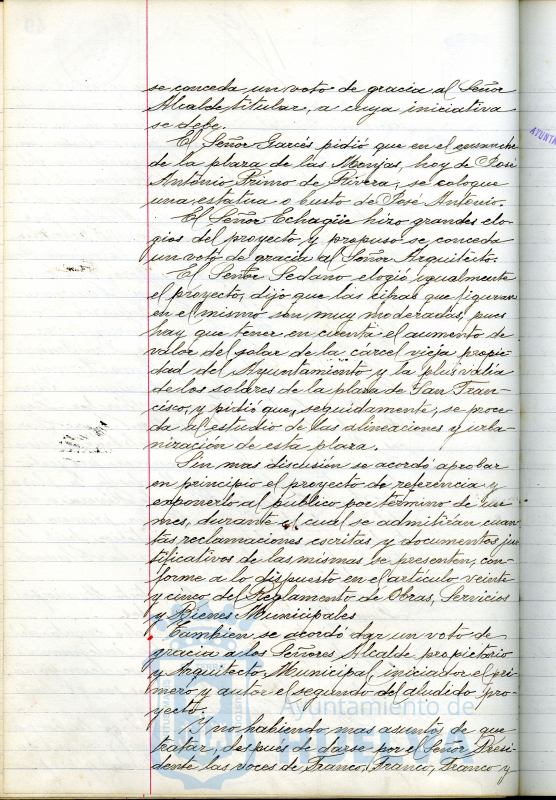 se conceda un voto de gracia al Señor
Alcalde titular, a cuya iniciativa
se debe.
El Señor Garcés pidió que en el ensanche
de la plaza de las Monjas, hoy de José
Antonio Primo de Rivera, se coloque
una estatua o busto de José Antonio.
El Señor Echagüe hizo grandes elo-
gios del proyecto y propuso se conceda
un voto de gracia al Señor Arquitecto.
El Señor Sedano elogió igualmente
el proyecto, dijo que las cifras que figuran
en el mismo son muy moderadas, pues
hay que tener en cuenta el aumento de
valor del solar de la cárcel vieja propie-
dad del Ayuntamiento y la plus valía
de los solares de la plaza de San Fran-
cisco, y pidió que, seguidamente, se proce-
da al estudio de las alineaciones y urba-
nización de esta plaza.
Sin mas discusión se acordó aprobar
en principio el proyecto de referencia y
exponerlo al público por término de un
mes, durante el cual se admitirán cuan-
tas reclamaciones escritas y documentos jus-
tificativos de las mismas se presenten, con-
forme a lo dispuesto en el artículo veinte
y cinco del Reglamento de Obras, Servicios
y Bienes Municipales
Tambien se acordó dar un voto de
gracia a los Señores Alcalde propietario
y Arquitecto Municipal, iniciador el pri-
mero y autor el segundo del aludido pro-
yecto.
Y no habiendo mas asuntos de que
tratar, después de darse por el Señor Presi-
dente las voces de Franco, Franco, Franco y
Ayuntamiento de
HUELVA
AYUNTA